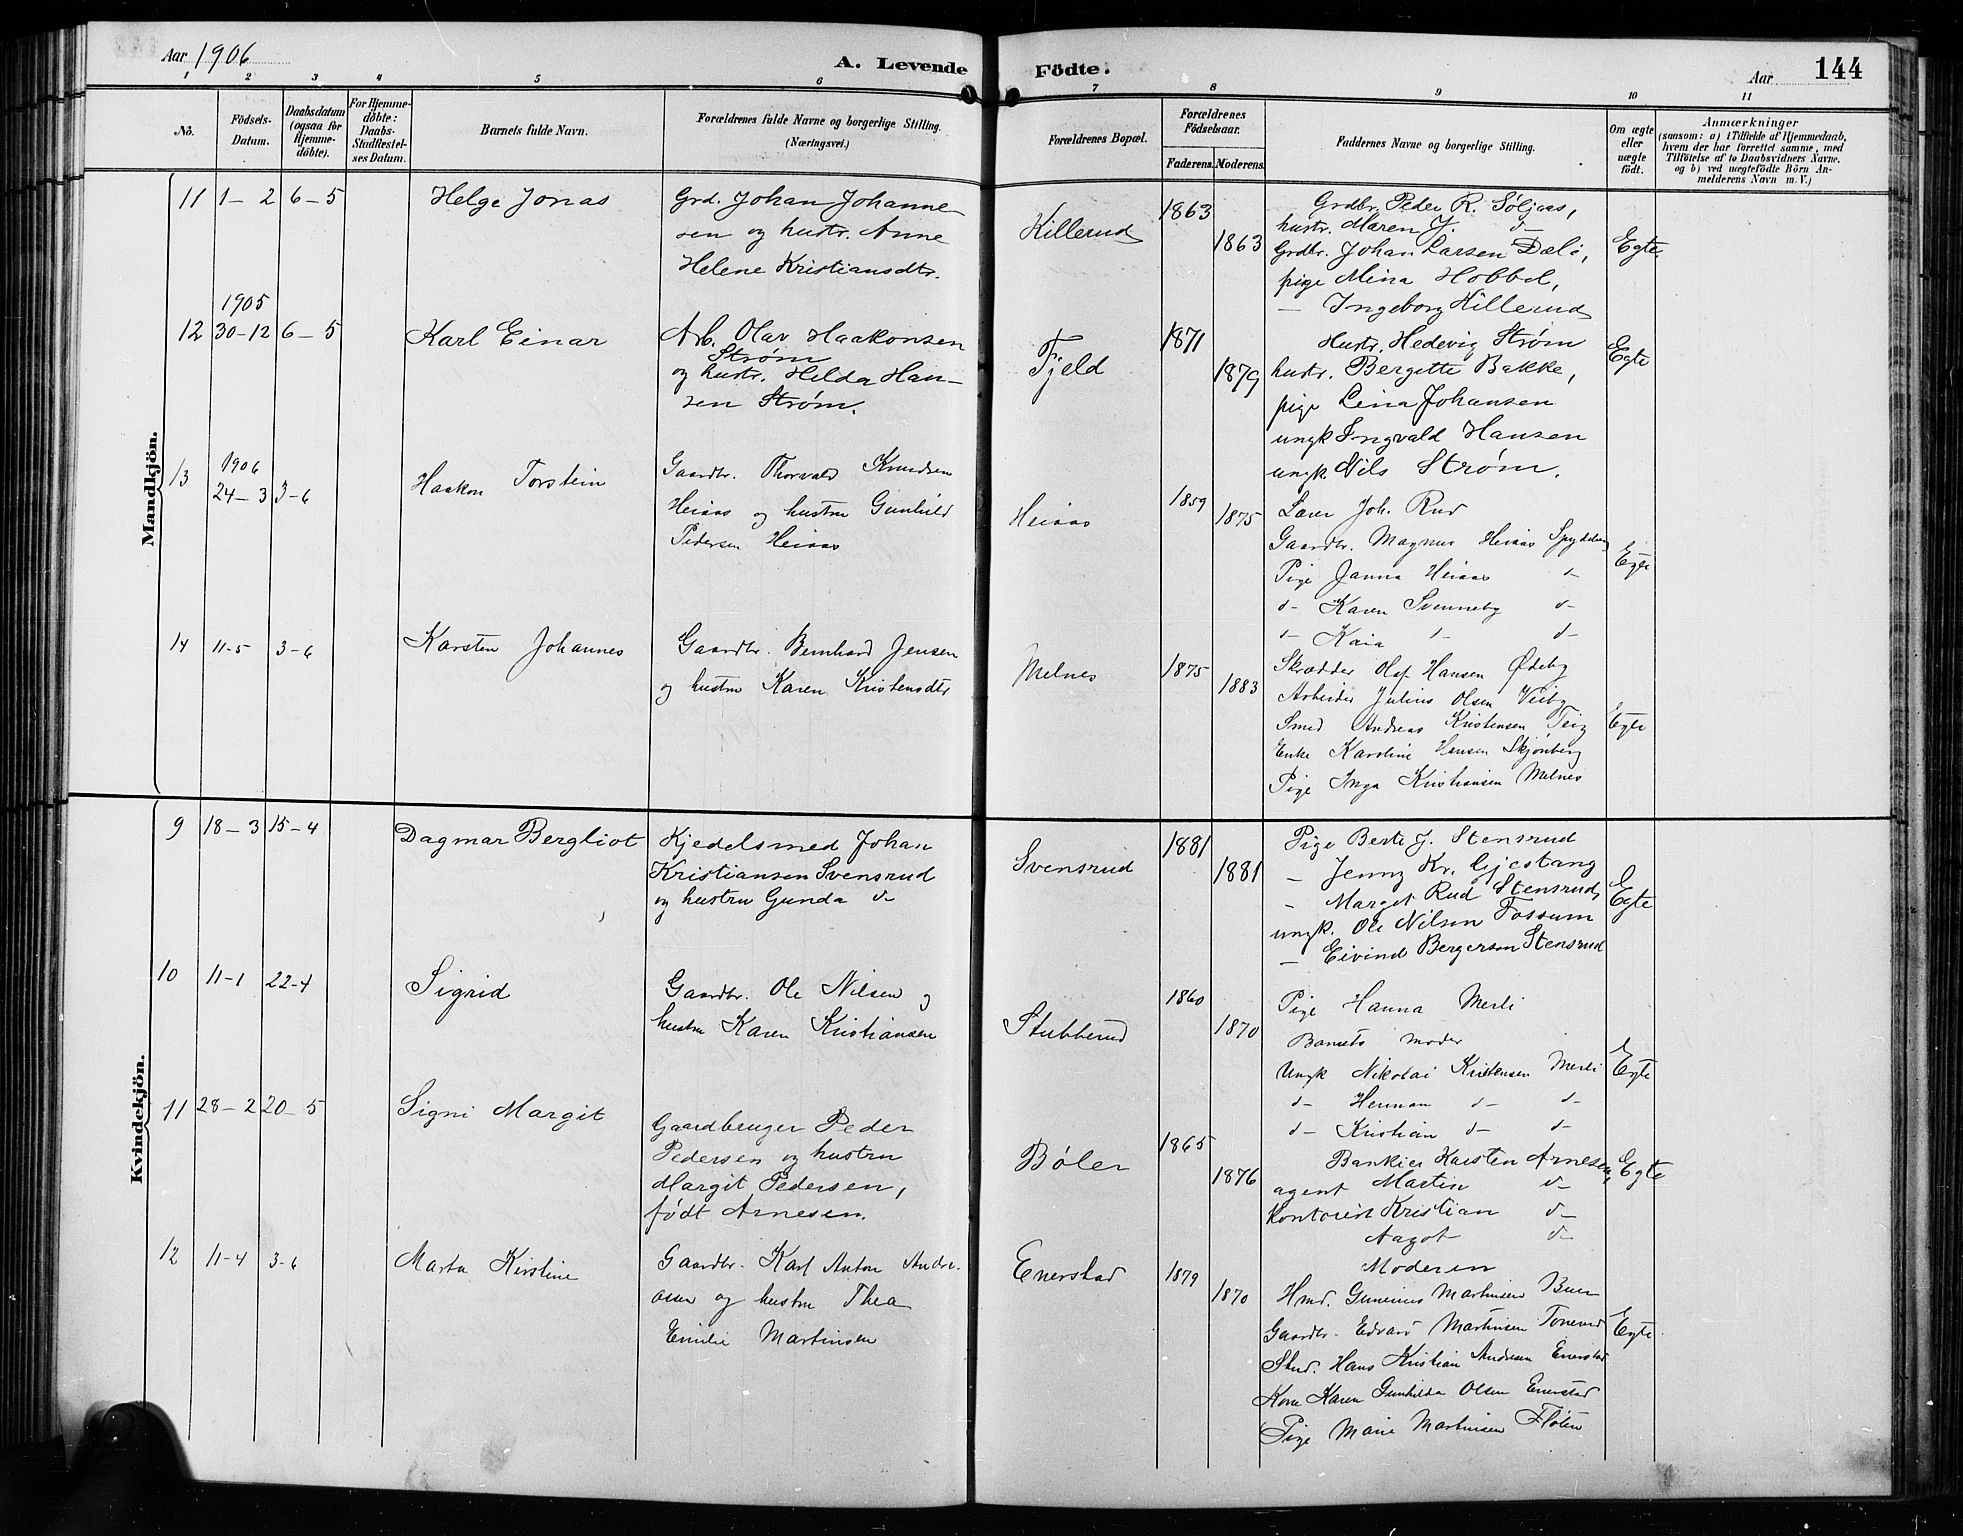 Aar 1906
A. Levende Födte.
Aar 144
1 2 3 4 5 6 7 8 9 10 11
No.
Födsels-Datum.
Daabsdatum (ogsaa for Hjemme-döbte).
For Hjemme-döbte: Daabs-Stadfæstel-ses Datum.
Barnets fulde Navn.
Forældrenes fulde Navne og borgerlige Stilling. (Næringsvei.)
Forældrenes Bopæl.
Forældrenes Födselsaar.
Faderens. Moderens.
Faddernes Navne og borgerlige Stilling.
Om ægte eller uægte födt.
Anmærkninger
(saasom: a) i Tilfælde af Hjemmedaab,
hvem der har forrettet samme, med
Tilföielse af to Daabsvidners Navne.
og b) ved uægtefödte Börn An-
melderens Navn m. V.)
Mandkjön.
11 1-2 6-5 Helge Jonas
Grd. Johan Johanne-
sen og hustr. Anne
Helene Kristiansdtr.
Killerud 1863 1863
Grdbr. Peder R. Söljaas,
hustr. Maren J. d-
Grdbr. Johan Larsen Dælö,
pige Mina Hobbel,
- Ingeborg Killerud
Egte.
12 1905 30-12 6-5 Karl Einar
Arb. Olav Haakonsen
Strøm
og hustr. Hilda Han-
sen Strøm.
Fjeld 1871 1879
Hustr. Hedevig Strøm
hustr. Bergitte Bakke,
pige Lina Johansen
ungk Ingvald Hansen
ungk. Nils Strøm.
Egte
13 1906 24-3 3-6 Haakon Torstein
Gaardbr. Thorvald Knudsen
Heiaas og hustru Gunhild
Pedersen Heiaas
Heiaas 1859 1875
Lærer Joh. Rud
Gaardbr. Magnus Heiaas Spydeberg
Pige Janna Heiaas d-
d- Karen Svenneby d-
d- Kaia d- d-
Egte
14 11-5 3-6 Karsten Johannes
Gaardbr. Bernhard Jensen
og hustru Karen Kristensdtr
Melnes 1875 1883
Skrædder Olaf Hansen Ødeby
Arbeider Julius Olsen Veiby
Smed Andreas Kristensen Teig
Enke Karoline Hansen Skjönberg
Pige Inga Kristiansen Melnes
Egte
Kvindekjön.
9 18-3 15-4 Dagmar Bergliot
Kjedelsmed Johan
Kristiansen Svensrud
og hustru Gunda d-
Svensrud 1881 1881
Pige Berte J. Stensrud
- Jenny Kr. Gjestang
- Margot Rud Stensrud,
ungk. Ole Nilsen Fossum
- Eivind Bergersen Stensrud
Egte
10 11-1 22-4 Sigrid
Gaardbr. Ole Nilsen og
hustru Karen Kristiansen
Stubberud 1860 1870
Pige Hanna Merli
Barnets moder
Ungk Nikolai Kristensen Merli
d- Herman d- d-
d- Kristian d- d-
Egte
11 28-2 20-5 Signi Margit
Gaardbruger Peder
Pedersen og hustru
Margit Pedersen,
født Arnesen.
Bøler 1865 1876
Bankier Karsten Arnesen,
agent Martin d-
Kontorist Kristian d-
Aagot d-
Moderen
Egte
12 11-4 3-6 Marta Kirstine
Gaardbr. Karl Anton Andre-
asen og hustru Thea
Emilie Martinsen
Enerstad 1879 1870
Hmd. Gunerius Martinsen Buer
Gaardbr. Edvard Martinsen Tonerud
Hans Kristian Andresen Enerstad
Kone Karen Gunhilda Olsen Enerstad
Pige Marie Martinsen Fløten
Egte